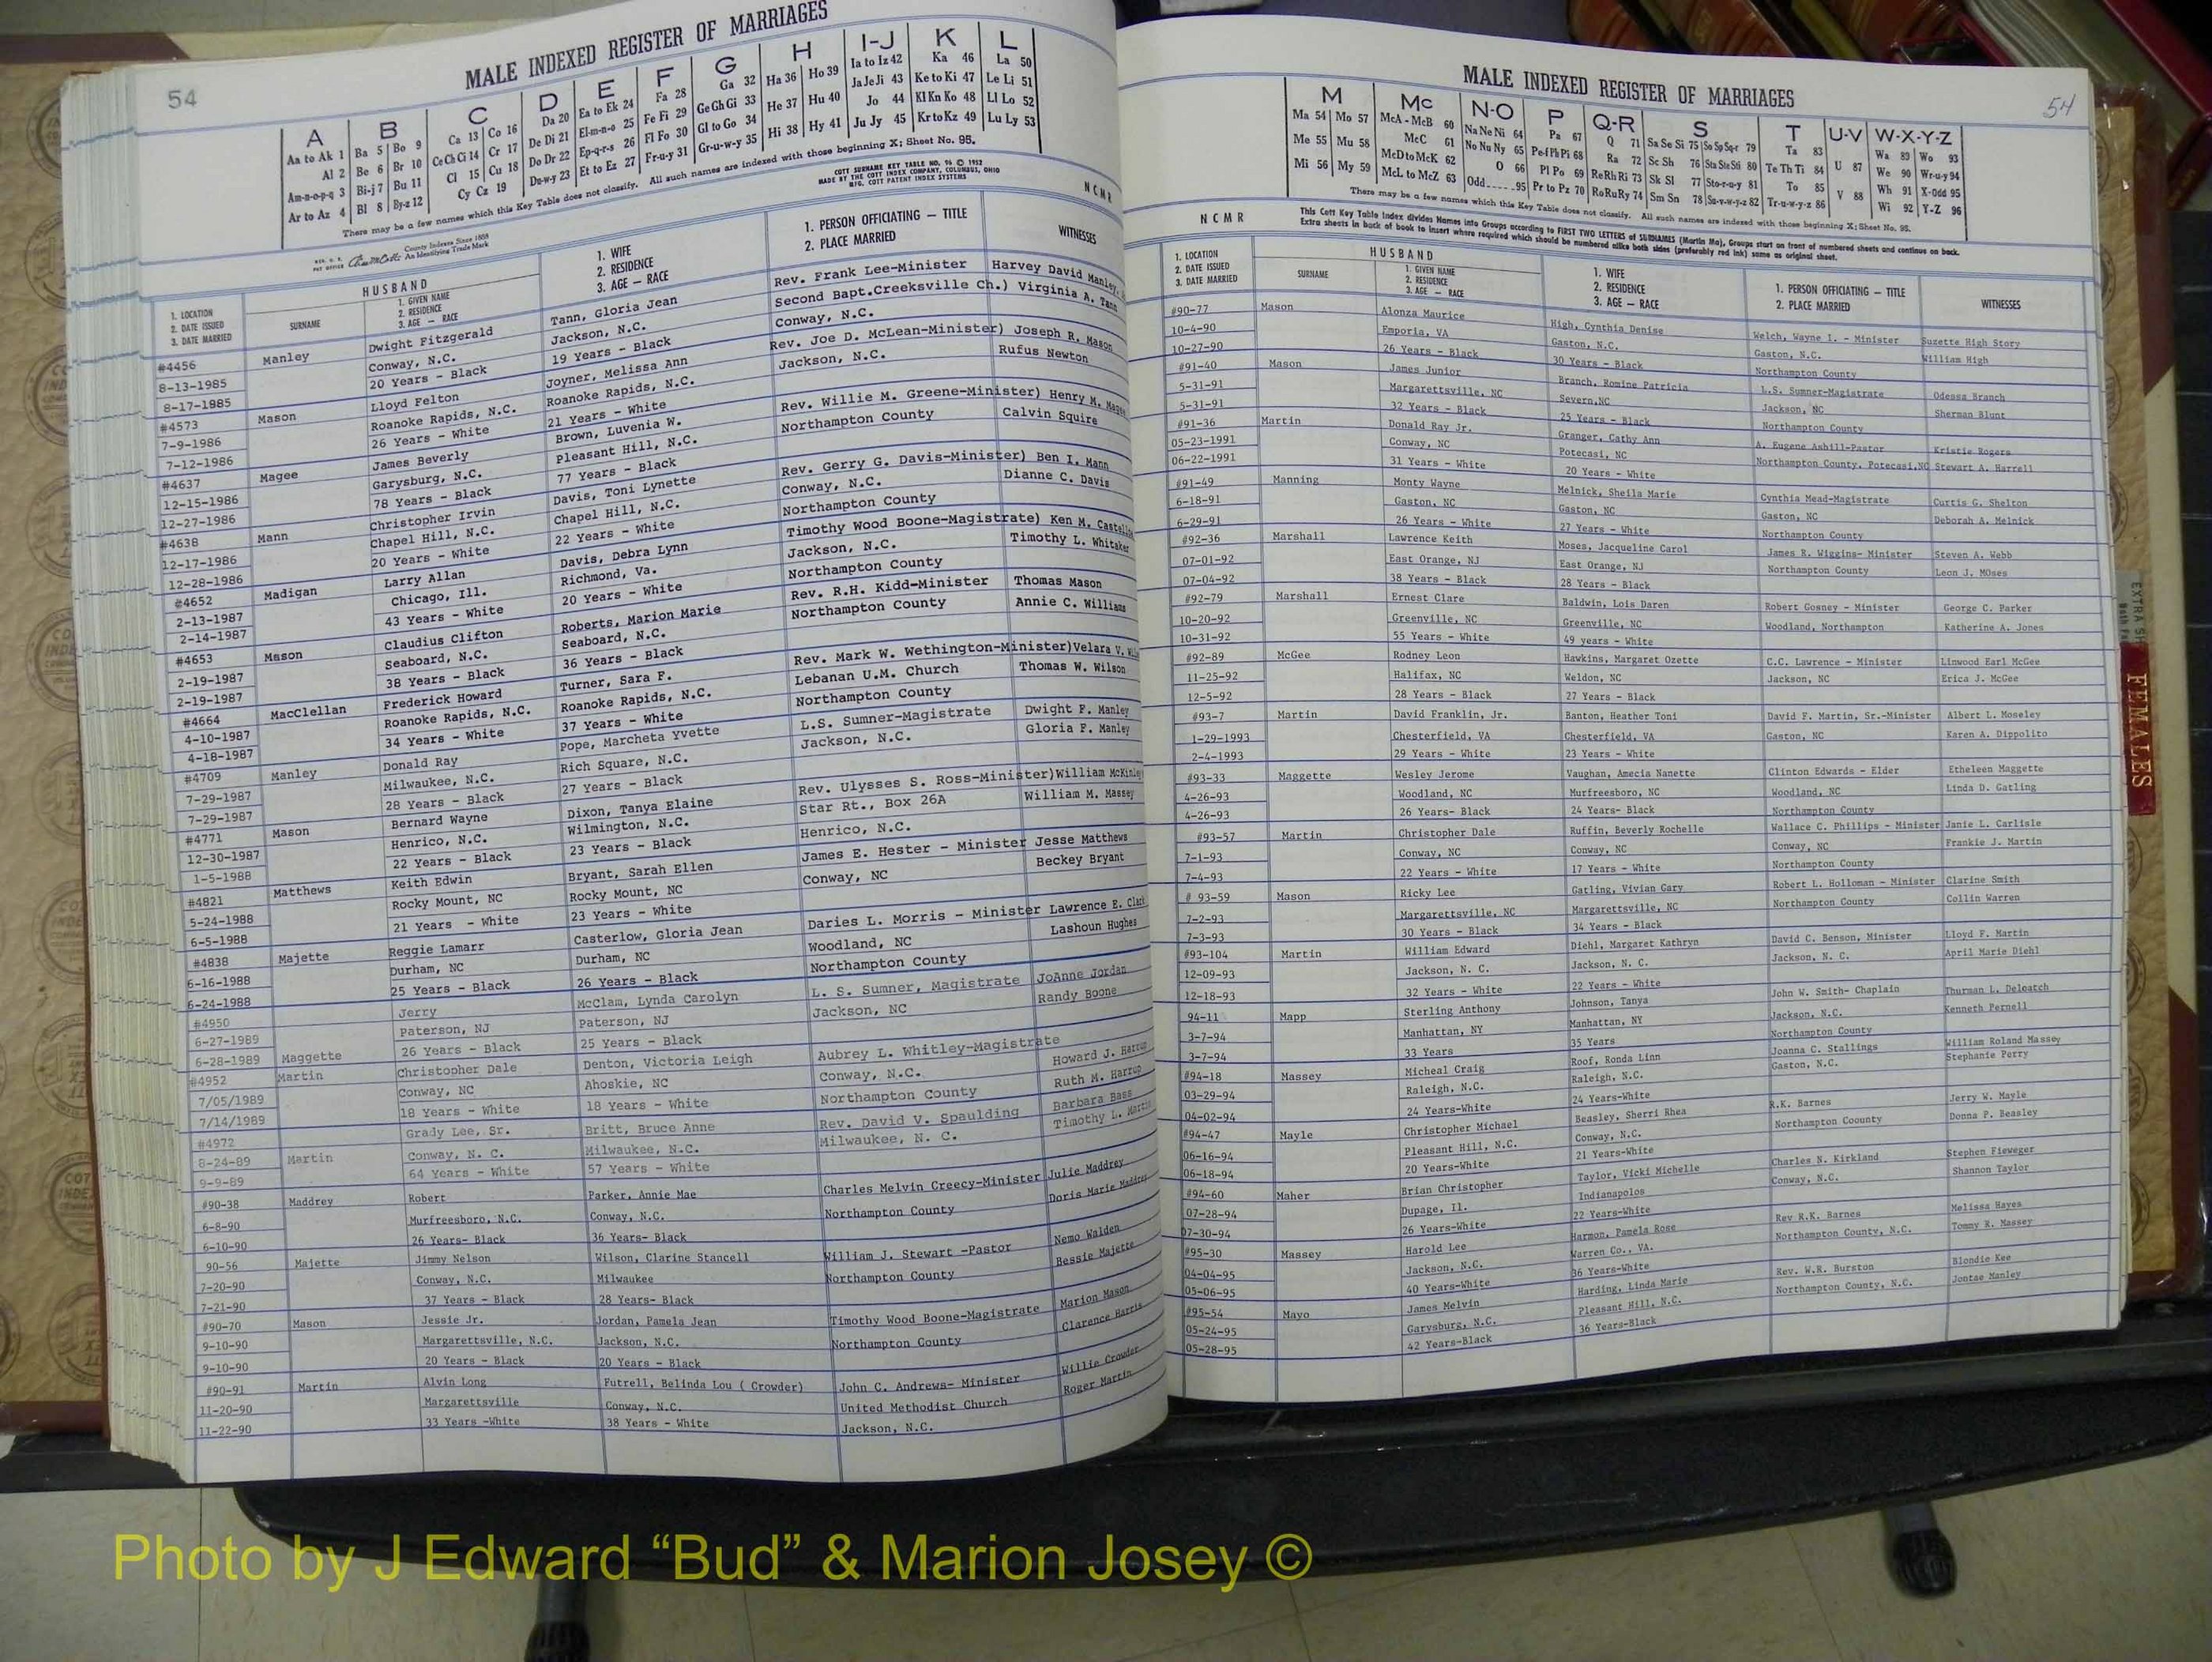 MALE INDEXED REGISTER OF MARRIAGES
54
A B C D E F G H I-J K L
Aa to Ak 1 Ba 5 Bo 9 Ca 13 Co 16 Da 20 Ea to Ek 24 Fa 28 Ga 32 Ha 36 Ho 39 Ia to Iz 42 Ka 46 La 50
Al 2 Be 6 Br 10 Ce Ch Ci 14 Cr 17 De Di 21 El-m-n-o 25 Fe Fi 29 Ge Gh Gi 33 He 37 Hu 40 Ja Je Ji 43 Ke to Ki 47 Le Li 51
Am-n-o-p-q 3 Bi-j 7 Bu 11 Cl 15 Cu 18 Do Dr 22 Ep-q-r-s 26 Fl Fo 30 Gl to Go 34 Hi 38 Hy 41 Jo 44 Kl Kn Ko 48 Ll Lo 52
Ar to Az 4 Bl 8 By-z 12 Cy Cz 19 Du-w-y 23 Et to Ez 27 Fr-u-y 31 Gr-u-w-y 35 Ju Jy 45 Kr to Kz 49 Lu Ly 53
There may be a few names which this Key Table does not classify. All such names are indexed with those beginning X; Sheet No. 95.
COTT SURNAME KEY TABLE NO. 96 © 1952
MADE BY THE COTT INDEX COMPANY, COLUMBUS, OHIO
MFG. COTT PATENT INDEX SYSTEMS
County Indexes Since 1888
An Identifying Trade Mark
N C M R
1. LOCATION
2. DATE ISSUED
3. DATE MARRIED
HUSBAND
SURNAME
1. GIVEN NAME
2. RESIDENCE
3. AGE — RACE
1. WIFE
2. RESIDENCE
3. AGE — RACE
1. PERSON OFFICIATING — TITLE
2. PLACE MARRIED
WITNESSES
#4456 Manley Dwight Fitzgerald Tann, Gloria Jean Rev. Frank Lee-Minister Harvey David Manley,
8-13-1985 Conway, N.C. Jackson, N.C. Second Bapt.Creeksville Ch.) Virginia A. Tann
8-17-1985 20 Years - Black 19 Years - Black Conway, N.C.
#4573 Mason Lloyd Felton Joyner, Melissa Ann Rev. Joe D. McLean-Minister) Joseph R. Mason
7-9-1986 Roanoke Rapids, N.C. Roanoke Rapids, N.C. Jackson, N.C. Rufus Newton
7-12-1986 26 Years - White 21 Years - White
#4637 Magee James Beverly Brown, Luvenia W. Rev. Willie M. Greene-Minister) Henry M. Magee
12-15-1986 Garysburg, N.C. Pleasant Hill, N.C. Northampton County Calvin Squire
12-27-1986 78 Years - Black 77 Years - Black
#4638 Mann Christopher Irvin Davis, Toni Lynette Rev. Gerry G. Davis-Minister) Ben I. Mann
12-17-1986 Chapel Hill, N.C. Chapel Hill, N.C. Conway, N.C. Dianne C. Davis
12-28-1986 20 Years - White 22 Years - White Northampton County
#4652 Madigan Larry Allan Davis, Debra Lynn Timothy Wood Boone-Magistrate) Ken M.
2-13-1987 Chicago, Ill. Richmond, Va. Jackson, N.C. Timothy L. Whitaker
2-14-1987 43 Years - White 20 Years - White Northampton County
#4653 Mason Claudius Clifton Roberts, Marion Marie Rev. R.H. Kidd-Minister Thomas Mason
2-19-1987 Seaboard, N.C. Seaboard, N.C. Northampton County Annie C. Williams
2-19-1987 38 Years - Black 36 Years - Black
#4664 MacClellan Frederick Howard Turner, Sara F. Rev. Mark W. Wethington-Minister)Velara V.
4-10-1987 Roanoke Rapids, N.C. Roanoke Rapids, N.C. Lebanan U.M. Church Thomas W. Wilson
4-18-1987 34 Years - White 37 Years - White Northampton County
#4709 Manley Donald Ray Pope, Marcheta Yvette L.S. Sumner-Magistrate Dwight F. Manley
7-29-1987 Milwaukee, N.C. Rich Square, N.C. Jackson, N.C. Gloria F. Manley
7-29-1987 28 Years - Black 27 Years - Black
#4771 Mason Bernard Wayne Dixon, Tanya Elaine Rev. Ulysses S. Ross-Minister)William McKinley
12-30-1987 Henrico, N.C. Wilmington, N.C. Star Rt., Box 26A William M. Massey
1-5-1988 22 Years - Black 23 Years - Black Henrico, N.C.
#4821 Matthews Keith Edwin Bryant, Sarah Ellen James E. Hester - Minister Jesse Matthews
5-24-1988 Rocky Mount, NC Rocky Mount, NC Conway, NC Beckey Bryant
6-5-1988 21 Years - White 23 Years - White
#4838 Majette Reggie Lamarr Casterlow, Gloria Jean Daries L. Morris - Minister Lawrence E. Clark
6-16-1988 Durham, NC Durham, NC Woodland, NC Lashoun Hughes
6-24-1988 25 Years - Black 26 Years - Black Northampton County
#4950 Jerry McClam, Lynda Carolyn L. S. Sumner, Magistrate JoAnne Jordan
6-27-1989 Paterson, NJ Paterson, NJ Jackson, NC Randy Boone
6-28-1989 Maggette 26 Years - Black 25 Years - Black
#4952 Martin Christopher Dale Denton, Victoria Leigh Aubrey L. Whitley-Magistrate Howard J. Harrup
7/05/1989 Conway, NC Ahoskie, NC Conway, N.C. Ruth M. Harrup
7/14/1989 18 Years - White 18 Years - White Northampton County
#4972 Grady Lee, Sr. Britt, Bruce Anne Rev. David V. Spaulding Barbara Bass
8-24-89 Martin Conway, N. C. Milwaukee, N.C. Milwaukee, N. C. Timothy L. Martin
9-9-89 64 Years - White 57 Years - White
#90-38 Maddrey Robert Parker, Annie Mae Charles Melvin Creecy-Minister Julie Maddrey
6-8-90 Murfreesboro, N.C. Conway, N.C. Northampton County Doris Marie Maddrey
6-10-90 26 Years- Black 36 Years- Black
90-56 Majette Jimmy Nelson Wilson, Clarine Stancell William J. Stewart -Pastor Nemo Walden
7-20-90 Conway, N.C. Milwaukee Northampton County Bessie Majette
7-21-90 37 Years - Black 28 Years- Black
#90-70 Mason Jessie Jr. Jordan, Pamela Jean Timothy Wood Boone-Magistrate Marion Mason
9-10-90 Margarettsville, N.C. Jackson, N.C. Northampton County Clarence Harris
9-10-90 20 Years - Black 20 Years - Black
#90-91 Martin Alvin Long Futrell, Belinda Lou ( Crowder) John C. Andrews- Minister Willie Crowder
11-20-90 Margarettsville Conway, N.C. United Methodist Church Roger Martin
11-22-90 33 Years -White 38 Years - White Jackson, N.C.
MALE INDEXED REGISTER OF MARRIAGES
54
M Mc N-O P Q-R S T U-V W-X-Y-Z
Ma 54 Mo 57 McA - McB 60 Na Ne Ni 64 Pa 67 Q 71 Sa Se Si 75 So Sp Sq-r 79 Ta 83 U 87 Wa 89 Wo 93
Me 55 Mu 58 McC 61 No Nu Ny 65 Pe-f Ph Pi 68 Ra 72 Sc Sh 76 Sta Ste Sti 80 Te Th Ti 84 V 88 We 90 Wr-u-y 94
Mi 56 My 59 McD to McK 62 O 66 Pl Po 69 Re Rh Ri 73 Sk Sl 77 Sto-r-u-y 81 To 85 Wh 91 X-Odd 95
McL to McZ 63 Odd 95 Pr to Pz 70 Ro Ru Ry 74 Sm Sn 78 Su-v-w-y-z 82 Tr-u-w-y-z 86 Wi 92 Y-Z 96
There may be a few names which this Key Table does not classify. All such names are indexed with those beginning X; Sheet No. 95.
This Cott Key Table Index divides Names into Groups according to FIRST TWO LETTERS of SURNAMES (Martin Ma), Groups start on front of numbered sheets and continue on back.
Extra sheets in back of book to insert where required which should be numbered alike both sides (preferably red ink) same as original sheet.
N C M R
1. LOCATION
2. DATE ISSUED
3. DATE MARRIED
HUSBAND
SURNAME
1. GIVEN NAME
2. RESIDENCE
3. AGE — RACE
1. WIFE
2. RESIDENCE
3. AGE — RACE
1. PERSON OFFICIATING — TITLE
2. PLACE MARRIED
WITNESSES
#90-77 Mason Alonza Maurice High, Cynthia Denise Welch, Wayne I. - Minister Suzette High Story
10-4-90 Emporia, VA Gaston, N.C. Gaston, N.C. William High
10-27-90 26 Years - Black 30 Years - Black Northampton County
#91-40 Mason James Junior Branch, Romine Patricia L.S. Sumner-Magistrate Odessa Branch
5-31-91 Margarettsville, NC Severn,NC Jackson, NC Sherman Blunt
5-31-91 32 Years - Black 25 Years - Black Northampton County
#91-36 Martin Donald Ray Jr. Granger, Cathy Ann A. Eugene Ashill-Pastor Kristie Rogers
05-23-1991 Conway, NC Potecasi, NC Northampton County, Potecasi,NC Stewart A. Harrell
06-22-1991 31 Years - White 20 Years - White
#91-49 Manning Monty Wayne Melnick, Sheila Marie Cynthia Mead-Magistrate Curtis G. Shelton
6-18-91 Gaston, NC Gaston, NC Gaston, NC Deborah A. Melnick
6-29-91 26 Years - White 27 Years - White Northampton County
#92-36 Marshall Lawrence Keith Moses, Jacqueline Carol James R. Wiggins- Minister Steven A. Webb
07-01-92 East Orange, NJ East Orange, NJ Northampton County Leon J. MOses
07-04-92 38 Years - Black 28 Years - Black
#92-79 Marshall Ernest Clare Baldwin, Lois Daren Robert Gosney - Minister George C. Parker
10-20-92 Greenville, NC Greenville, NC Woodland, Northampton Katherine A. Jones
10-31-92 55 Years - White 49 years - White
#92-89 McGee Rodney Leon Hawkins, Margaret Ozette C.C. Lawrence - Minister Linwood Earl McGee
11-25-92 Halifax, NC Weldon, NC Jackson, NC Erica J. McGee
12-5-92 28 Years - Black 27 Years - Black
#93-7 Martin David Franklin, Jr. Banton, Heather Toni David F. Martin, Sr.-Minister Albert L. Moseley
1-29-1993 Chesterfield, VA Chesterfield, VA Gaston, NC Karen A. Dippolito
2-4-1993 29 Years - White 23 Years - White
#93-33 Maggette Wesley Jerome Vaughan, Amecia Nanette Clinton Edwards - Elder Etheleen Maggette
4-26-93 Woodland, NC Murfreesboro, NC Woodland, NC Linda D. Gatling
4-26-93 26 Years- Black 24 Years- Black Northampton County
#93-57 Martin Christopher Dale Ruffin, Beverly Rochelle Wallace C. Phillips - Minister Janie L. Carlisle
7-1-93 Conway, NC Conway, NC Conway, NC Frankie J. Martin
7-4-93 22 Years - White 17 Years - White Northampton County
# 93-59 Mason Ricky Lee Gatling, Vivian Gary Robert L. Holloman - Minister Clarine Smith
7-2-93 Margarettsville, NC Margarettsville, NC Northampton County Collin Warren
7-3-93 30 Years - Black 34 Years - Black
#93-104 Martin William Edward Diehl, Margaret Kathryn David C. Benson, Minister Lloyd F. Martin
12-09-93 Jackson, N. C. Jackson, N. C. Jackson, N. C. April Marie Diehl
12-18-93 32 Years - White 22 Years - White
94-11 Mapp Sterling Anthony Johnson, Tanya John W. Smith- Chaplain Thurman L. Deloatch
3-7-94 Manhattan, NY Manhattan, NY Jackson, N.C. Kenneth Pernell
3-7-94 33 Years 35 Years Northampton County
#94-18 Massey Micheal Craig Roof, Ronda Linn Joanna C. Stallings William Roland Massey
03-29-94 Raleigh, N.C. Raleigh, N.C. Gaston, N.C. Stephanie Perry
04-02-94 24 Years-White 24 Years-White
#94-47 Mayle Christopher Michael Beasley, Sherri Rhea R.K. Barnes Jerry W. Mayle
06-16-94 Pleasant Hill, N.C. Conway, N.C. Northampton Coounty Donna P. Beasley
06-18-94 20 Years-White 21 Years-White
#94-60 Maher Brian Christopher Taylor, Vicki Michelle Charles N. Kirkland Stephen Fieweger
07-28-94 Dupage, Il. Indianapolos Conway, N.C. Shannon Taylor
07-30-94 26 Years-White 22 Years-White
#95-30 Massey Harold Lee Harmon, Pamela Rose Rev R.K. Barnes Melissa Hayes
04-04-95 Jackson, N.C. Warren Co., VA. Northampton County, N.C. Tommy R. Massey
05-06-95 40 Years-White 36 Years-White
#95-54 Mayo James Melvin Harding, Linda Marie Rev. W.R. Burston Blondie Kee
05-24-95 Garysburg, N.C. Pleasant Hill, N.C. Northampton County, N.C. Jontae Manley
05-28-95 42 Years-Black 36 Years-Black
FEMALES
Photo by J Edward “Bud” & Marion Josey ©